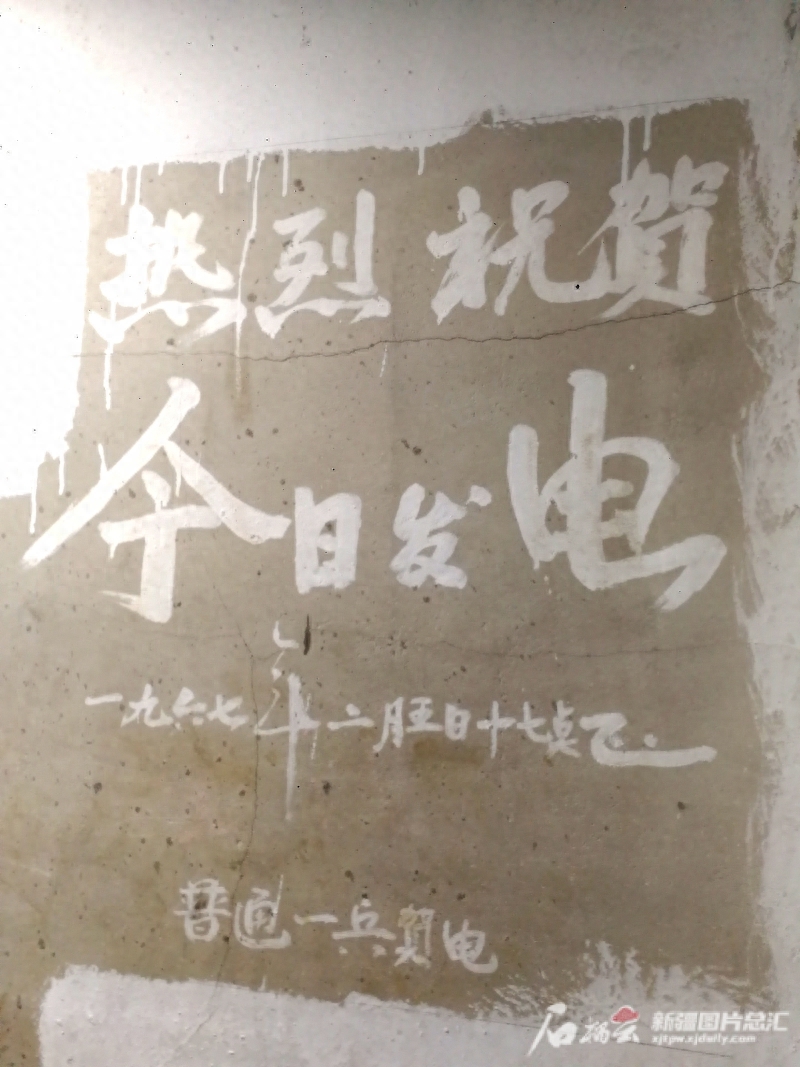 热烈祝賀
今日发电
一九六七年二月五日十七点正.
普通一兵賀电
石榴云 新疆图片总汇
xjtpw.xjdaily.com